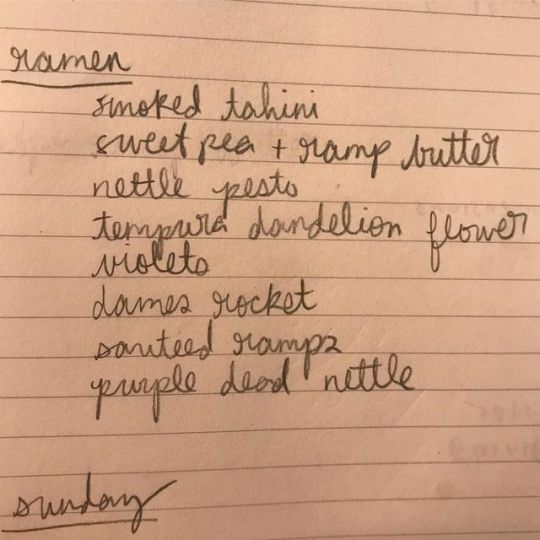 ramen
smoked tahini
sweet pea + ramp butter
nettle pesto
tempura dandelion flower
violets
dames rocket
sauteed ramps
purple dead nettle
sunday